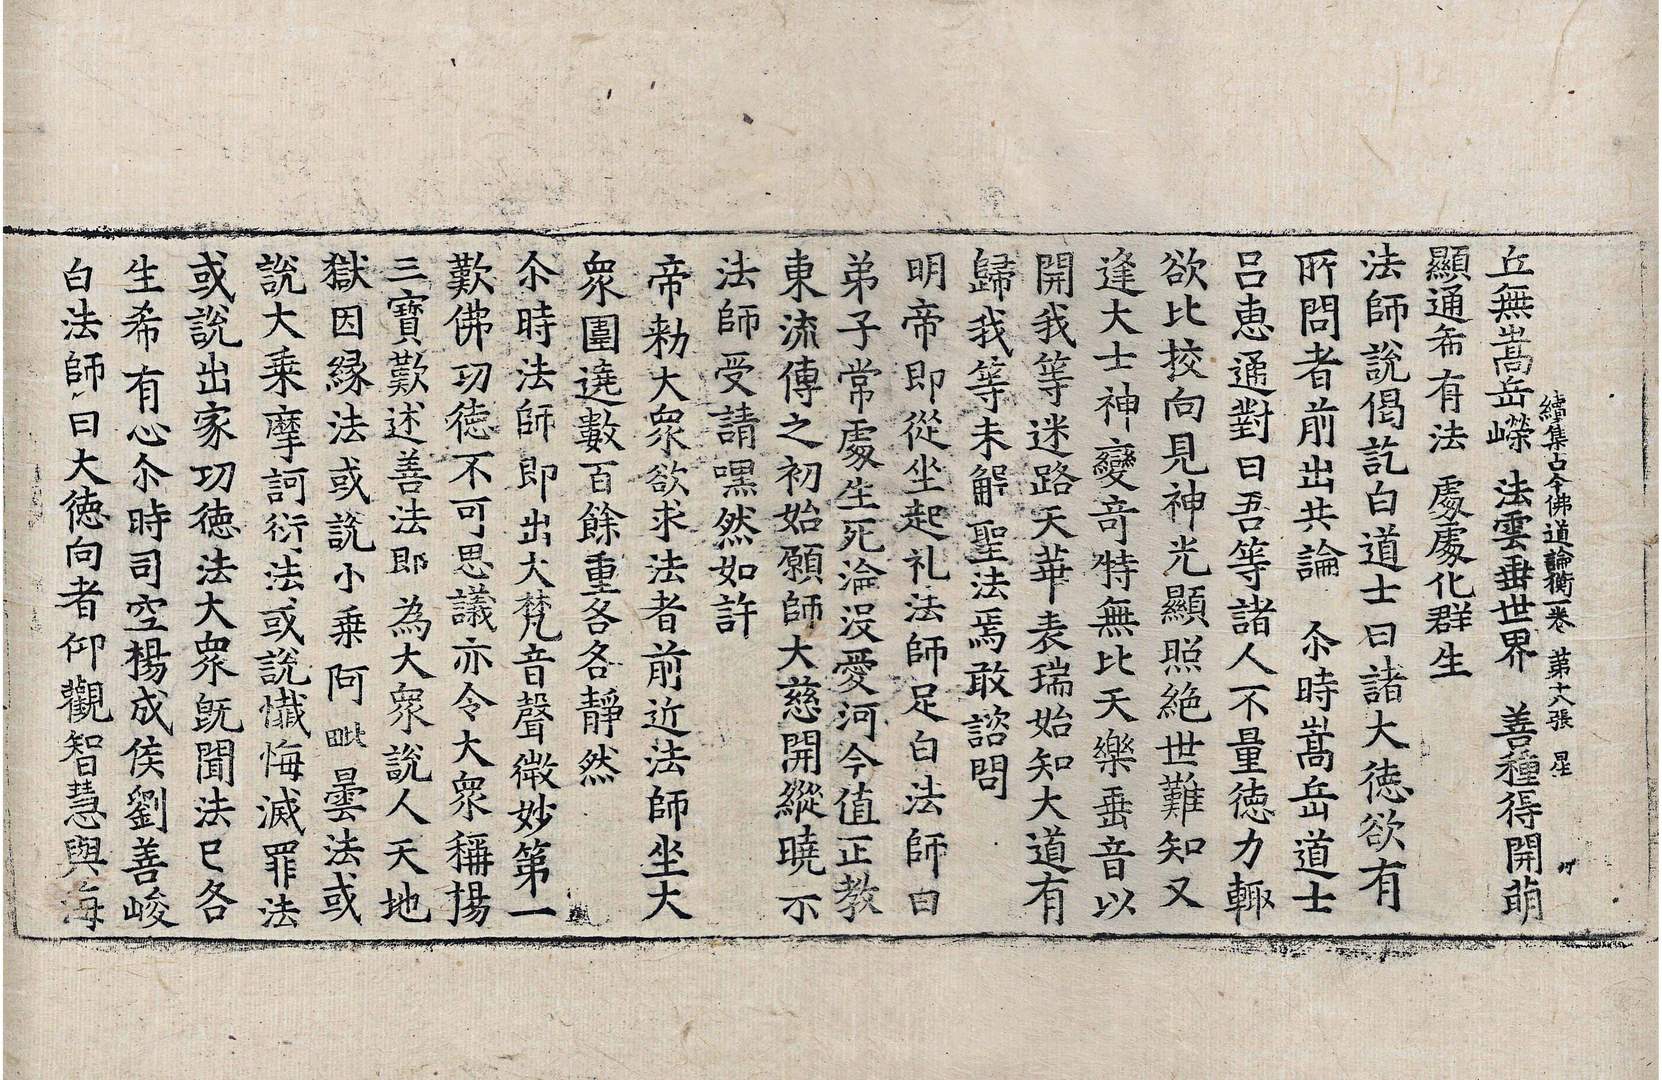 丘無嵩岳嶸 法雲垂世界 善種得開萌
續集古今佛道論衡一卷 第十八張 星
顯通希有法 處處化群生
法師說偈訖白道士曰諸大徳欲有
所問者前出共論 尒時嵩岳道士
吕惠通對曰吾等諸人不量徳力輙
欲比挍向見神光顯照絶世難知又
逢大士神變竒特無比天樂垂音以
開我等迷路天華表瑞始知大道有
歸我等未解聖法焉敢諮問
明帝即從坐起礼法師足白法師曰
弟子常處生死淪没愛河今值正教
東流傳之初始願師大慈開縱曉示
法師受請嘿然如許
帝勑大衆欲求法者前近法師坐大
衆圍遶數百餘重各各靜然
尒時法師即出大梵音聲微妙第一
歎佛功徳不可思議亦令大衆稱揚
三寶歎述善法即為大衆說人天地
獄因縁法或說小乗阿毗曇法或
說大乗摩訶衍法或說懴悔滅罪法
或說出家功徳法大衆既聞法已各
生希有心尒時司空楊成侯劉善峻
白法師曰大徳向者仰觀智慧與海